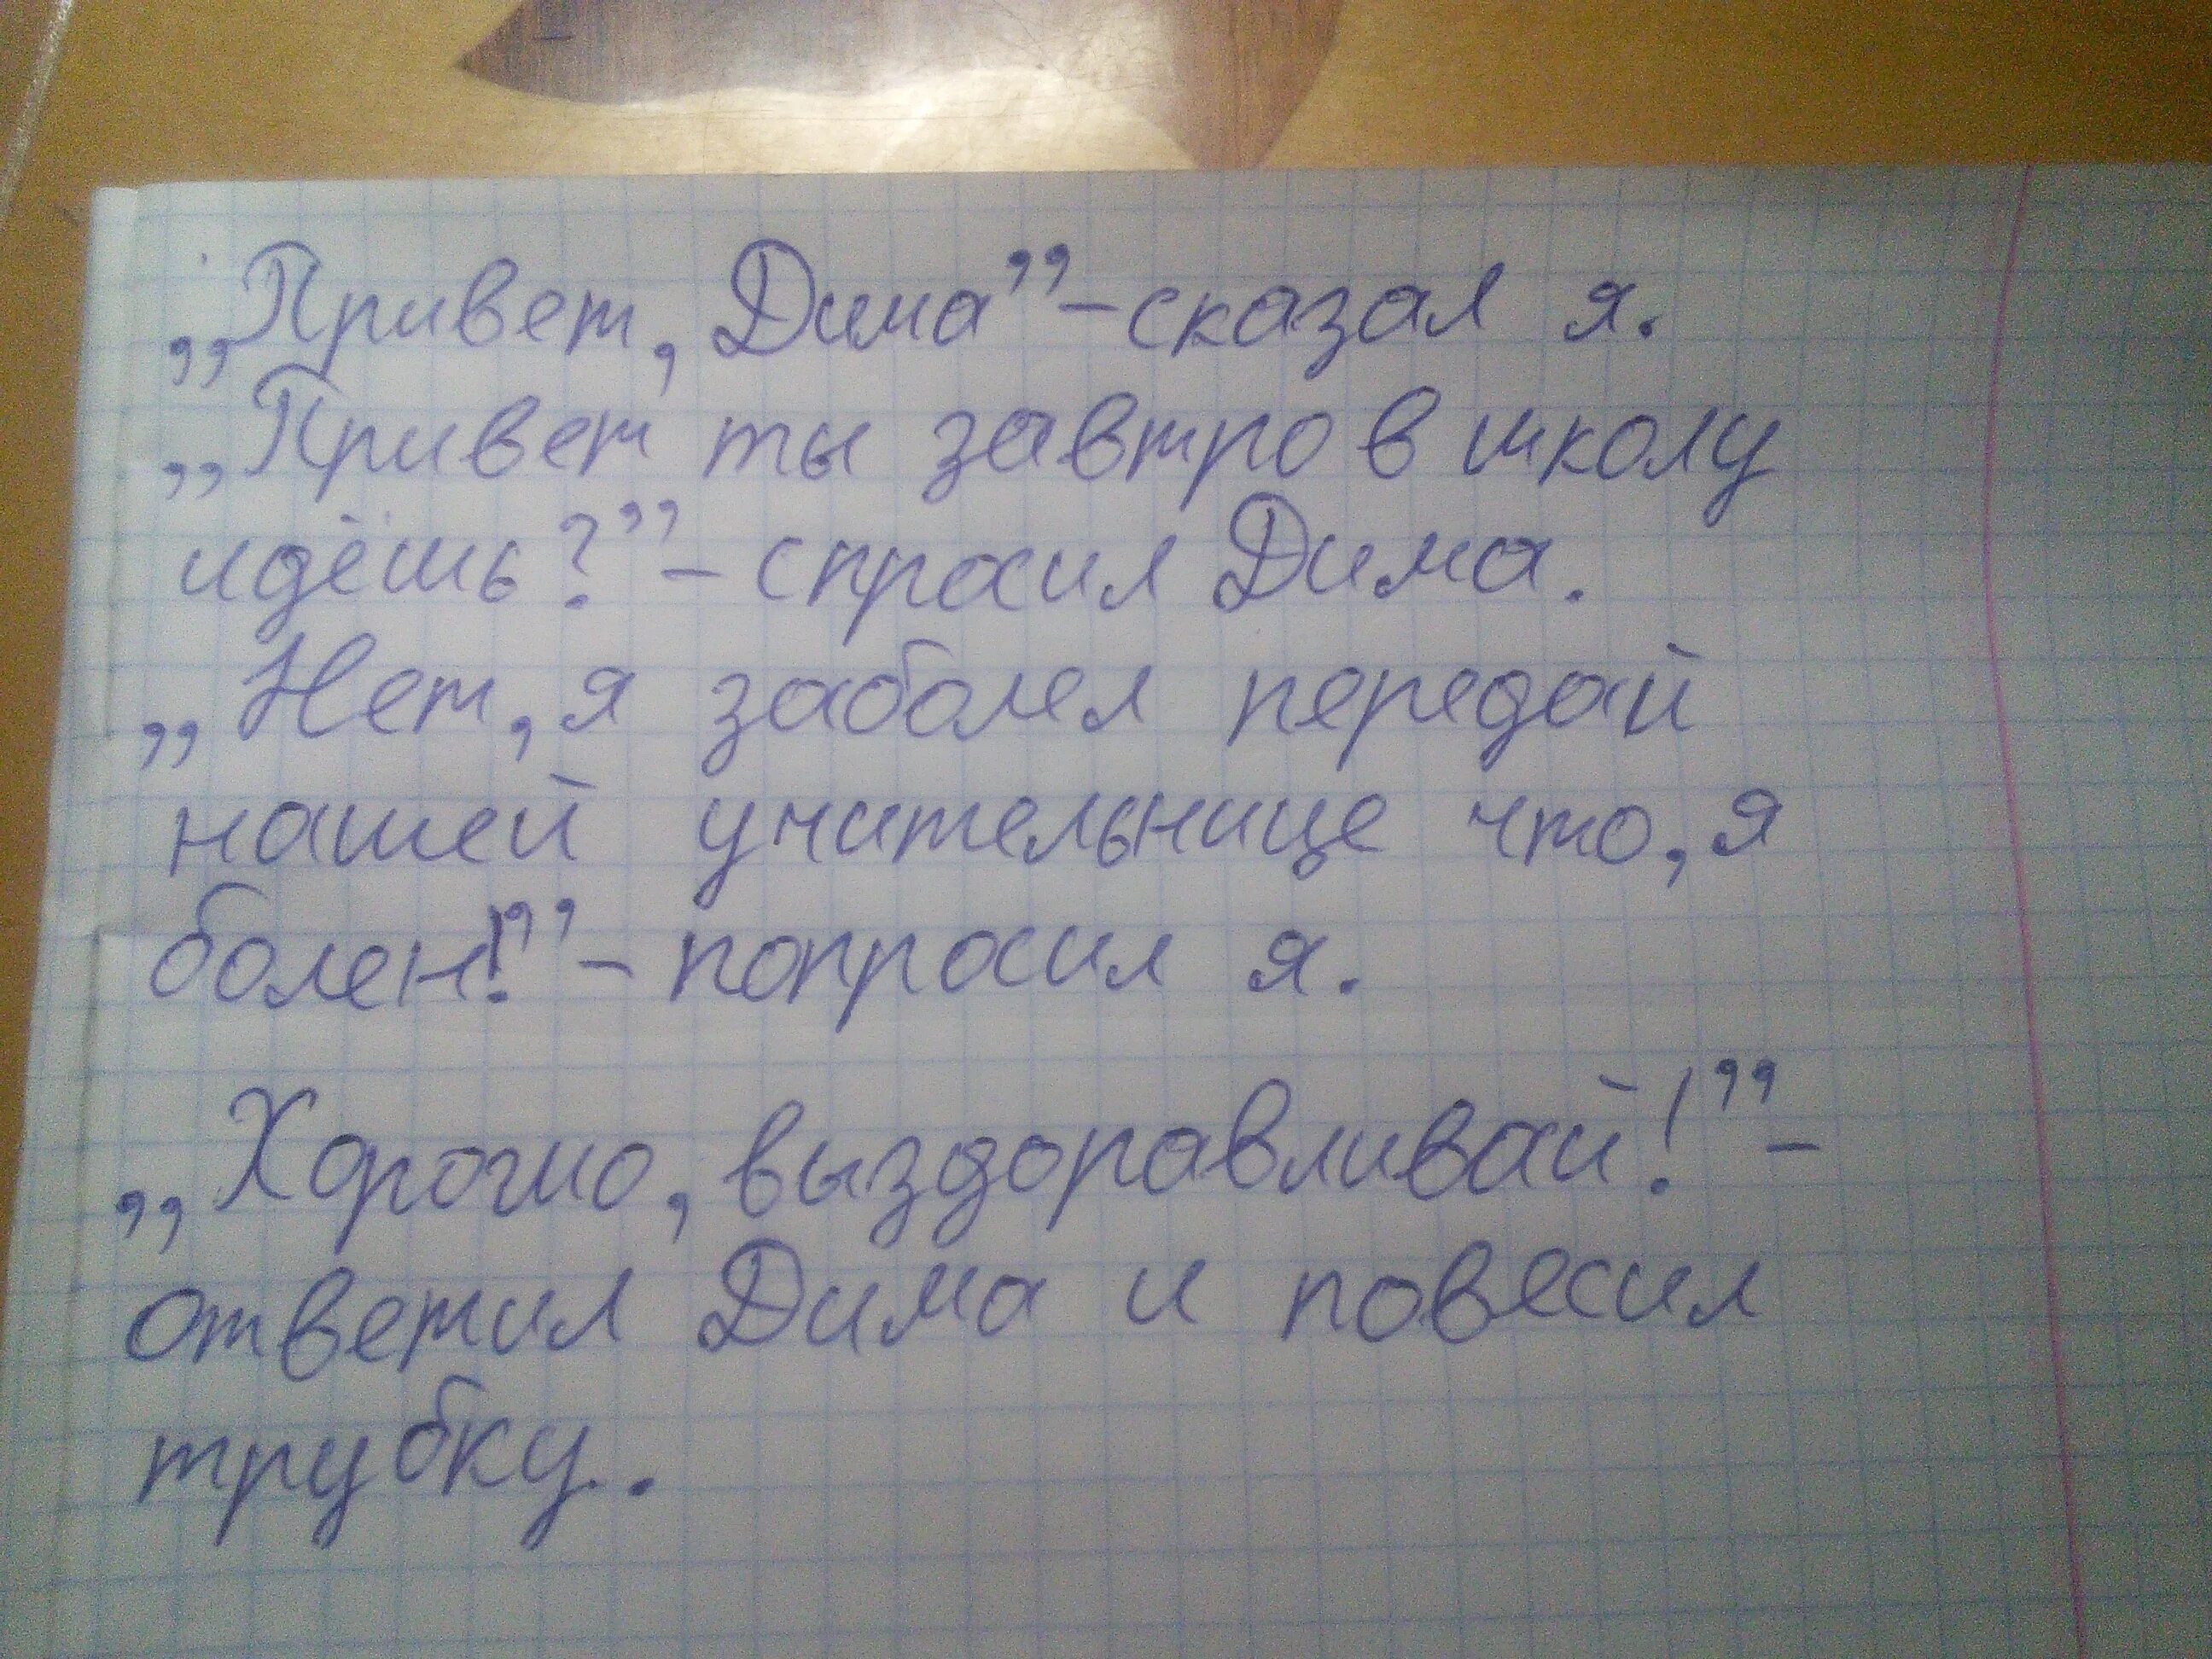 „Привет, Дима”-сказал я.
„Привет ты завтро в школу
идёшь?”- спросил Дима.
„Нет, я заболел передай
нашей учительнице что, я
болен!”- попросил я.
„Хорошо, выздоравливай!”-
ответил Дима и повесил
трубку..